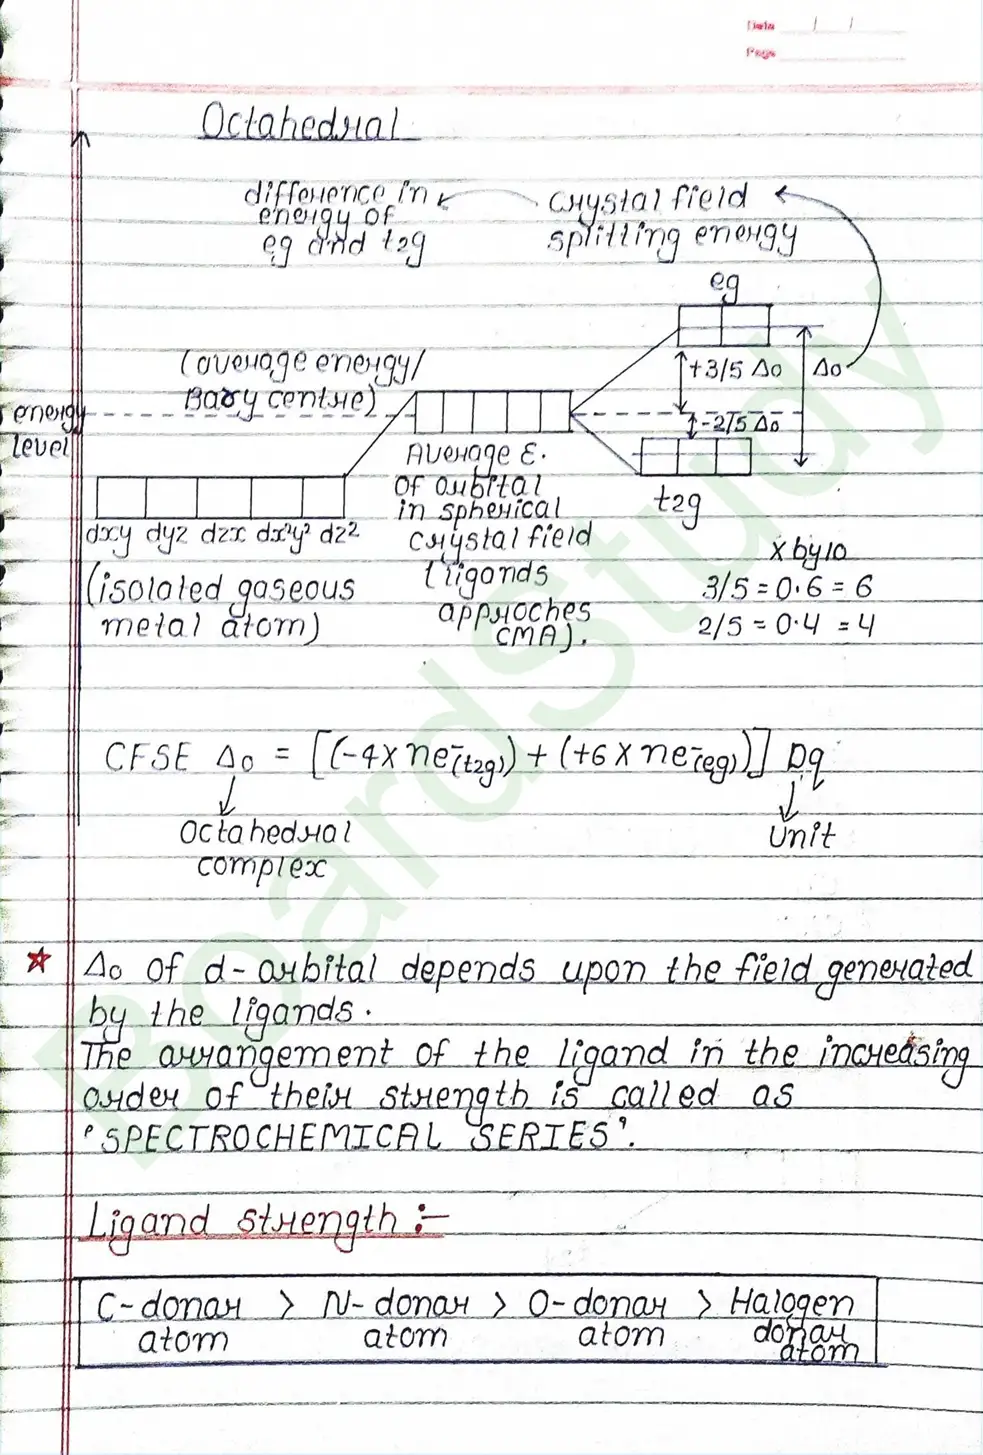 Date / /
Page
Octahedral
difference in
energy of
eg and t2g
crystal field
splitting energy
eg
(average energy/
Bary centre)
+3/5 Δo
Δo
energy
level
-2/5 Δo
Average E.
of orbital
in spherical
crystal field
(ligands
approches
CMA).
t2g
dxy dyz dzx dx²y² dz²
(isolated gaseous
metal atom)
X by 10
3/5 = 0.6 = 6
2/5 = 0.4 = 4
CFSE Δo = [(-4 X ne⁻(t2g)) + (+6 X ne⁻(eg))] Dq
Octahedral
complex
Unit
☆ Δo of d-orbital depends upon the field generated
by the ligands.
The arrangement of the ligand in the increasing
order of their strength is called as
'SPECTROCHEMICAL SERIES'.
Ligand strength :-
C-donar > N-donar > O-donar > Halogen
atom atom atom donar
atom
BoardStudy